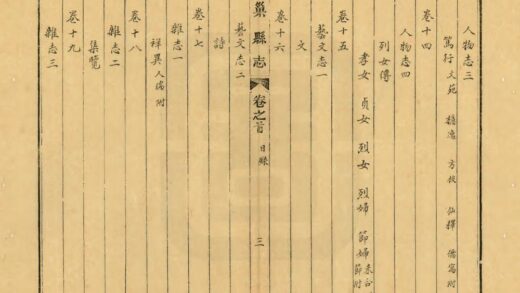 人物志三
篤行 文苑 隱逸 方技 仙釋 僑寓附
卷十四
人物志四
列女傳
孝女 貞女 烈女 烈婦 節婦 未合節附
卷十五
藝文志一
文
卷十六
藝文志二
詩
巢縣志 卷之首 目録 三
卷十七
雜志一
祥異 人瑞附
卷十八
雜志二
集覽
卷十九
雜志三